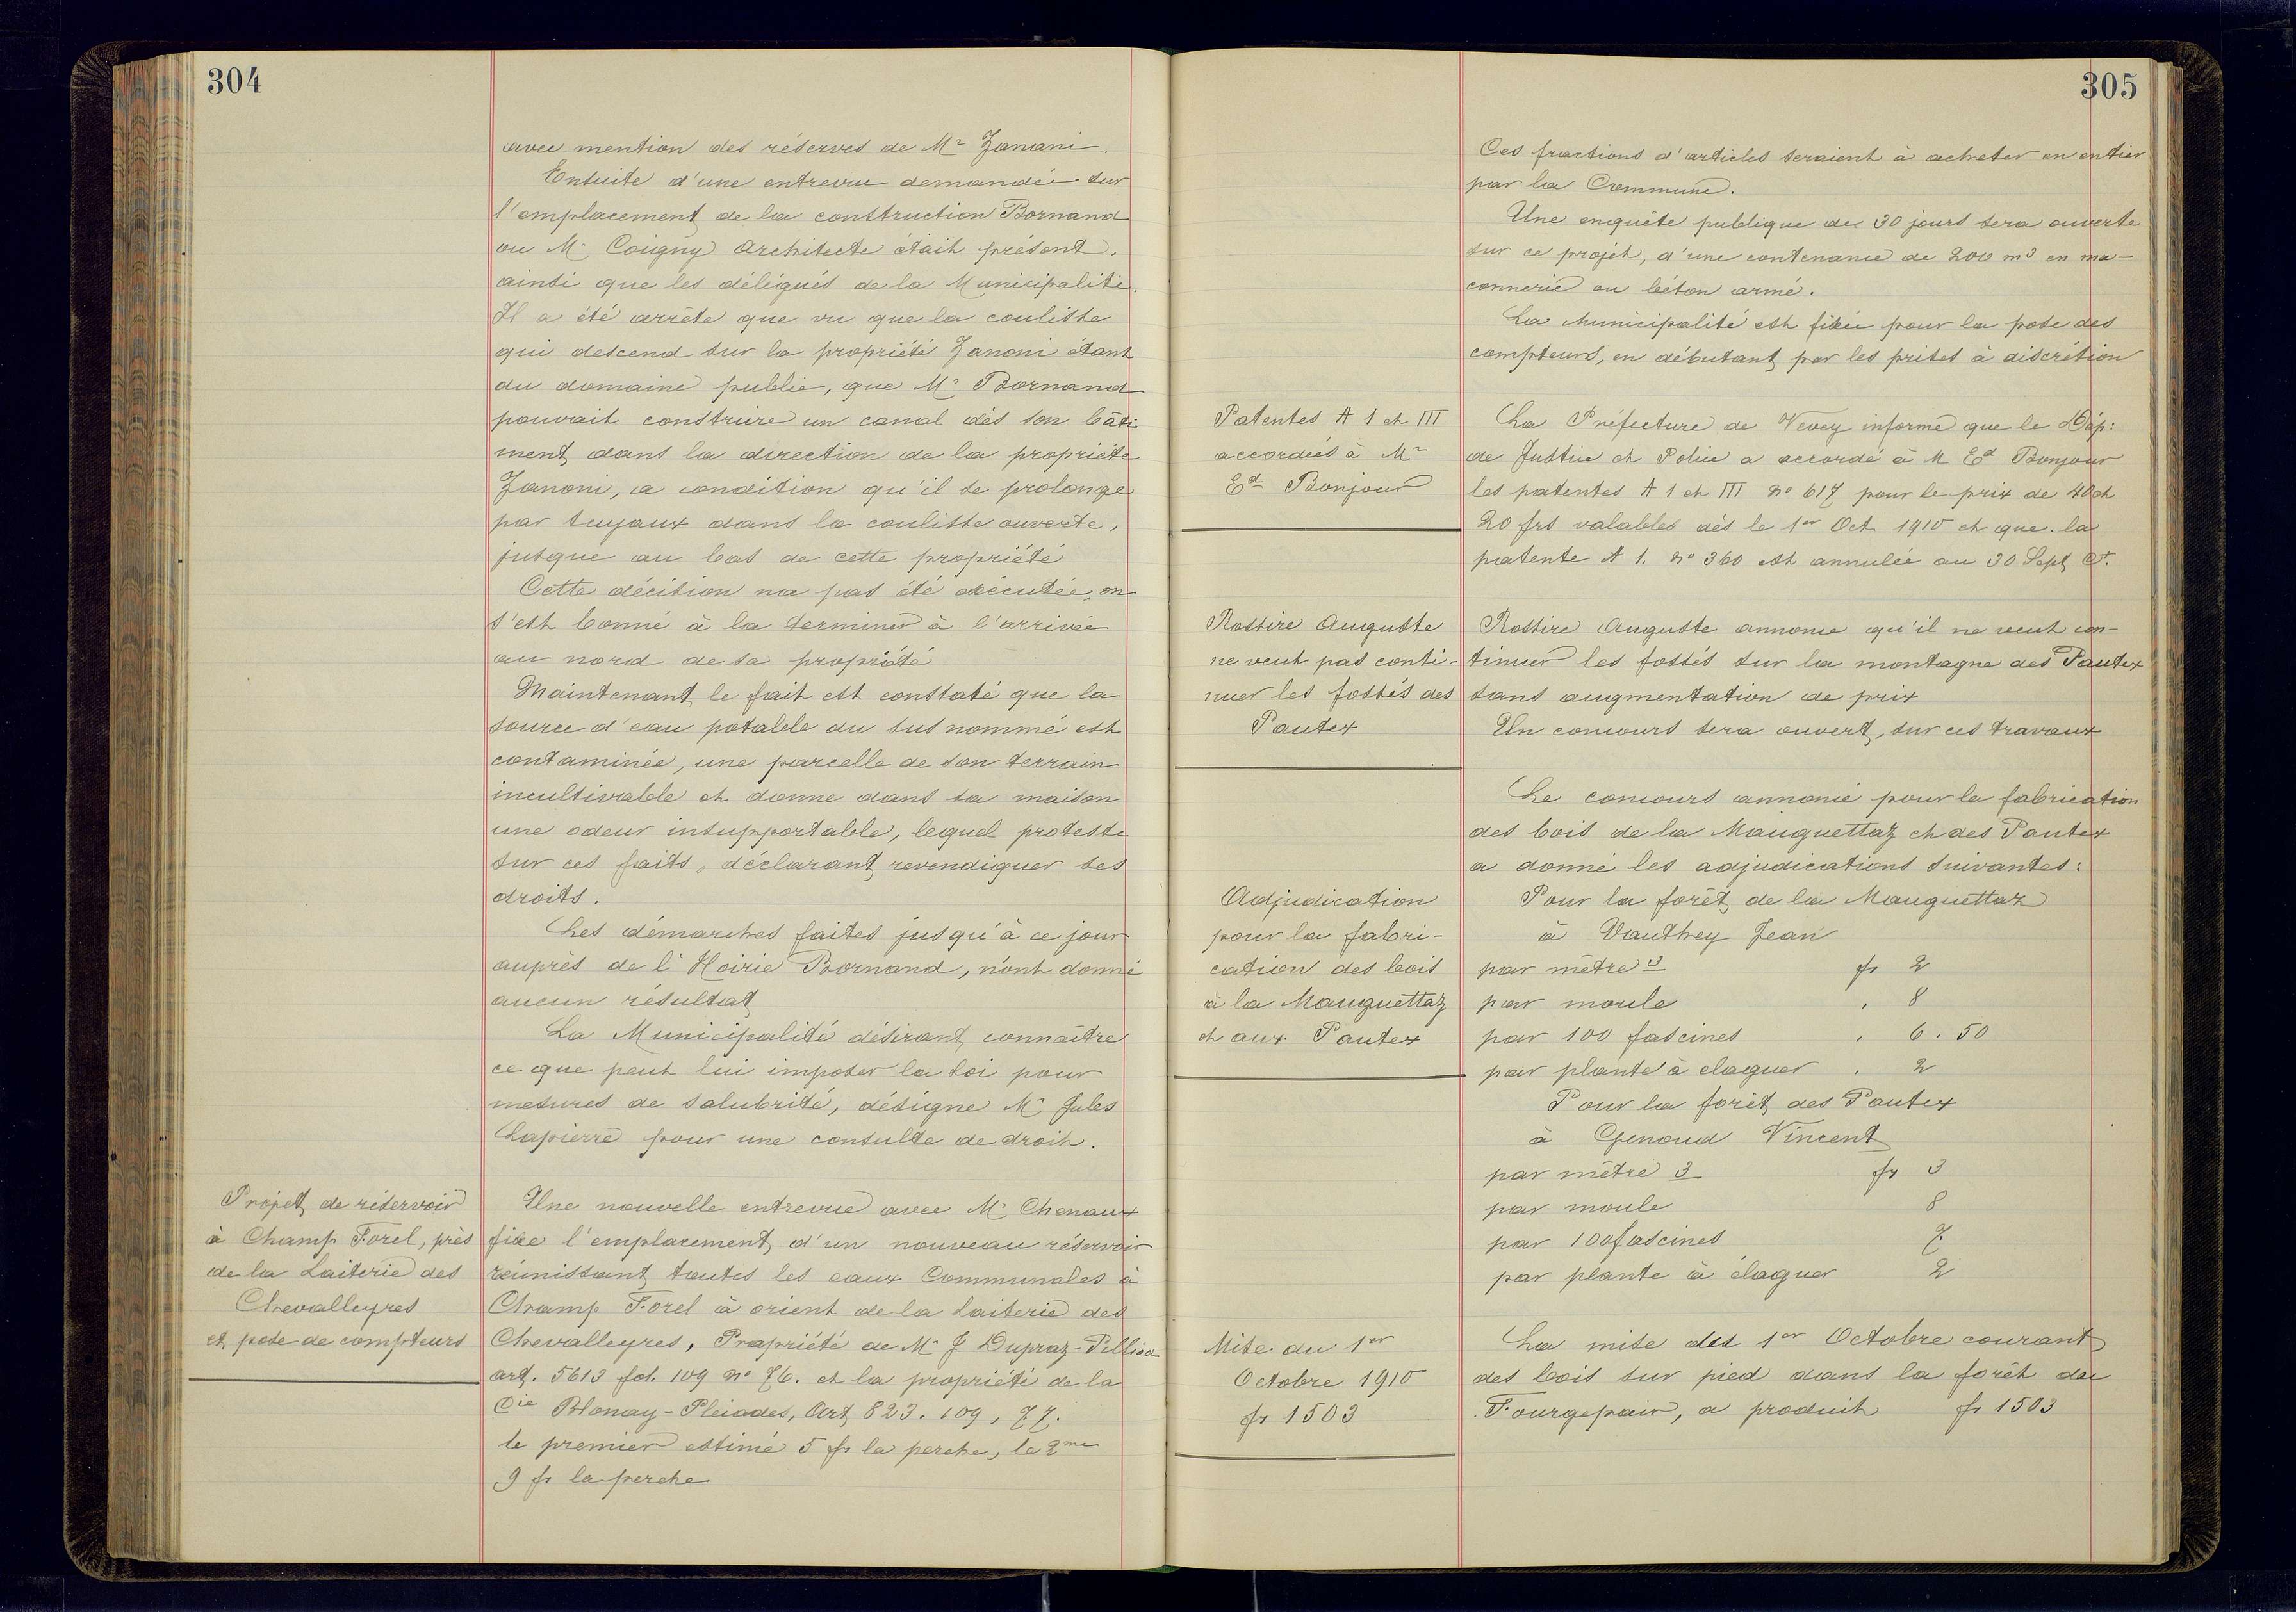 304
avec mention des réserves de Mr Zanoni.
Ensuite d'une entrevue demandée sur
l'emplacement de la construction Bornand
ou Mr Coigny Architecte était présent.
ainsi que les délégués de la Municipalité.
Il a été arrêté que vu que la coulisse
qui descend sur la propriété Zanoni étant
du domaine public, que Mr Bornand
pouvait construire un canal dès son bâti
ment dans la direction de la propriété
Zanoni, a condition qu'il se prolonge
par tuyaux dans la coulisse ouverte,
jusque au bas de cette propriété
Cette décision na pas été exécutée, on
s'est borné à la terminer à l'arrivée
au nord de sa propriété
Maintenant le fait est constaté que la
source d'eau potable du sus nommé est
contaminée, une parcelle de son terrain
incultivable et donne dans sa maison
une odeur insupportable, lequel proteste
sur ces faits, déclarant revendiquer ses
droits.
Les démarches faites jusqu'à ce jour
auprès de l'Hoirie Bornand, n'ont donné
aucun résultat
La Municipalité désirant connaître
ce que peut lui imposer la loi pour
mesures de salubrité, désigne Mr Jules
Lapierre pour une consulte de droit.
Projet de réservoir
à Champ Forel, près
de la Laiterie des
Chevalleyres
et pose de compteurs
Une nouvelle entrevue avec Mr Chenaux
fixe l'emplacement d'un nouveau réservoir
réunissant toutes les eaux Communales à
Champ Forel à orient de la Laiterie des
Chevalleyres, Propriété de Mr J Dupraz-Pellion
art. 5613 fol. 109 no 76. et la propriété de la
Cie Blonay-Pleiades, Art 823. 109, 77.
le premier estimé 5 fr la perche, le 2me
9 fr la perche
305
Ces fractions d'articles seraient à acheter en entier
par la Commune.
Une enquête publique de 30 jours sera ouverte
sur ce projet, d'une contenance de 200 m3 en ma-
connerie ou béton armé.
La Municipalité est fixée pour la pose des
compteurs, en débutant par les prises à discrétion
Patentes A 1 et III
accordées à Mr
Ed Bonjour
La Préfecture de Vevey informe que le Dép:
de Justice et Police a accordé à M Ed Bonjour
les patentes A 1 et III no 617 pour le prix de 40 et
20 frs valables dès le 1er Oct. 1910 et que la
patente A 1. no 360 est annulée au 30 Sept Ct.
Rossire Auguste
ne veut pas conti-
nuer les fossés des
Pautex
Rossire Auguste annonce qu'il ne veut con-
tinuer les fossés sur la montagne des Pautex
sans augmentation de prix
Un concours sera ouvert, sur ces travaux
Adjudication
pour la fabri-
cation des bois
à la Mauguettaz
et aux Pautex
Le concours annoncé pour la fabrication
des bois de la Mauguettaz et des Pautex
a donné les adjudications suivantes:
Pour la forêt de la Mauguettaz
à Vauthey Jean
par mètre 3 fr 2
par moule " 8
par 100 fascines " 6.50
par plante à elaguer " 2
Pour la forêt des Pautex
à Genoud Vincent
par mètre 3 fr 3
par moule 8
par 100 fascines 7.
par plante à élaguer 2
Mise du 1er
Octobre 1910
fr 1503
La mise des 1er Octobre courant
des bois sur pied dans la forêt de
Fourgepair, a produit fr 1503